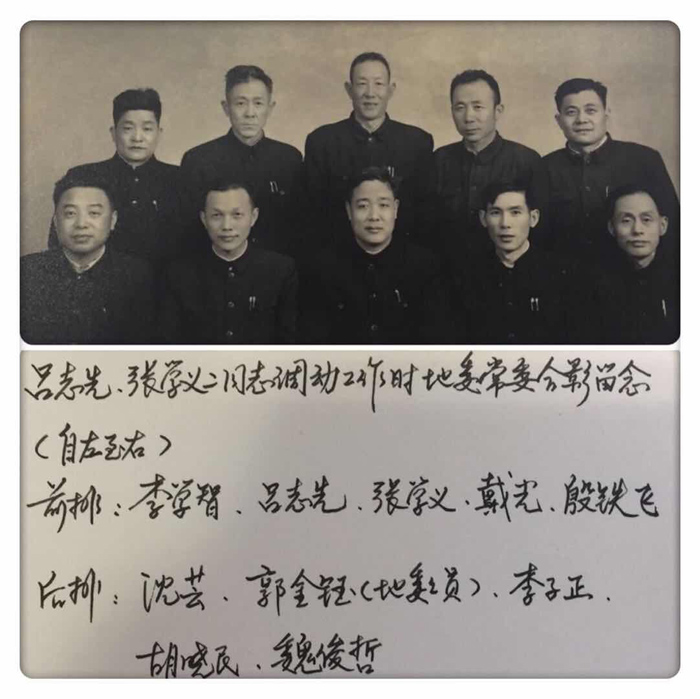 吕志先、张学义二同志调动工作时地委常委合影留念
（自左至右）
前排：李学智、吕志先、张学义、戴光、殷铁飞
后排：沈芸、郭金钰（地委委员）、李子正、
胡晓民、魏俊哲